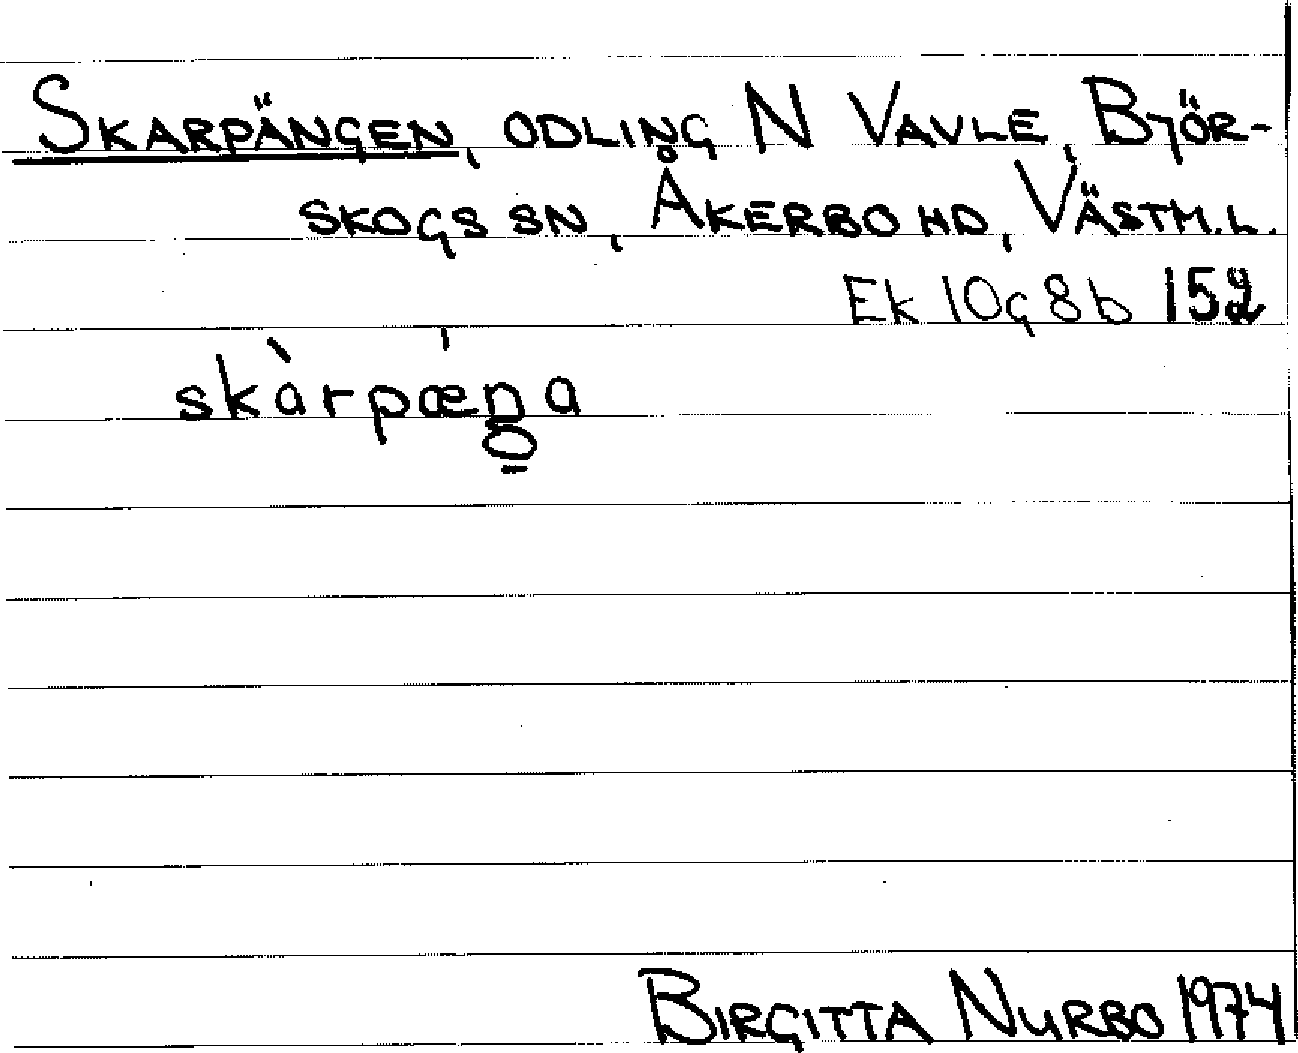 SKARPÄNGEN, ODLING N VAVLE, BJÖR-
SKOGS SN, ÅKERBO HD, VÄSTM.L.
Ek 10g8b 152
skàrpæŋa
BIRGITTA NURBO 1974